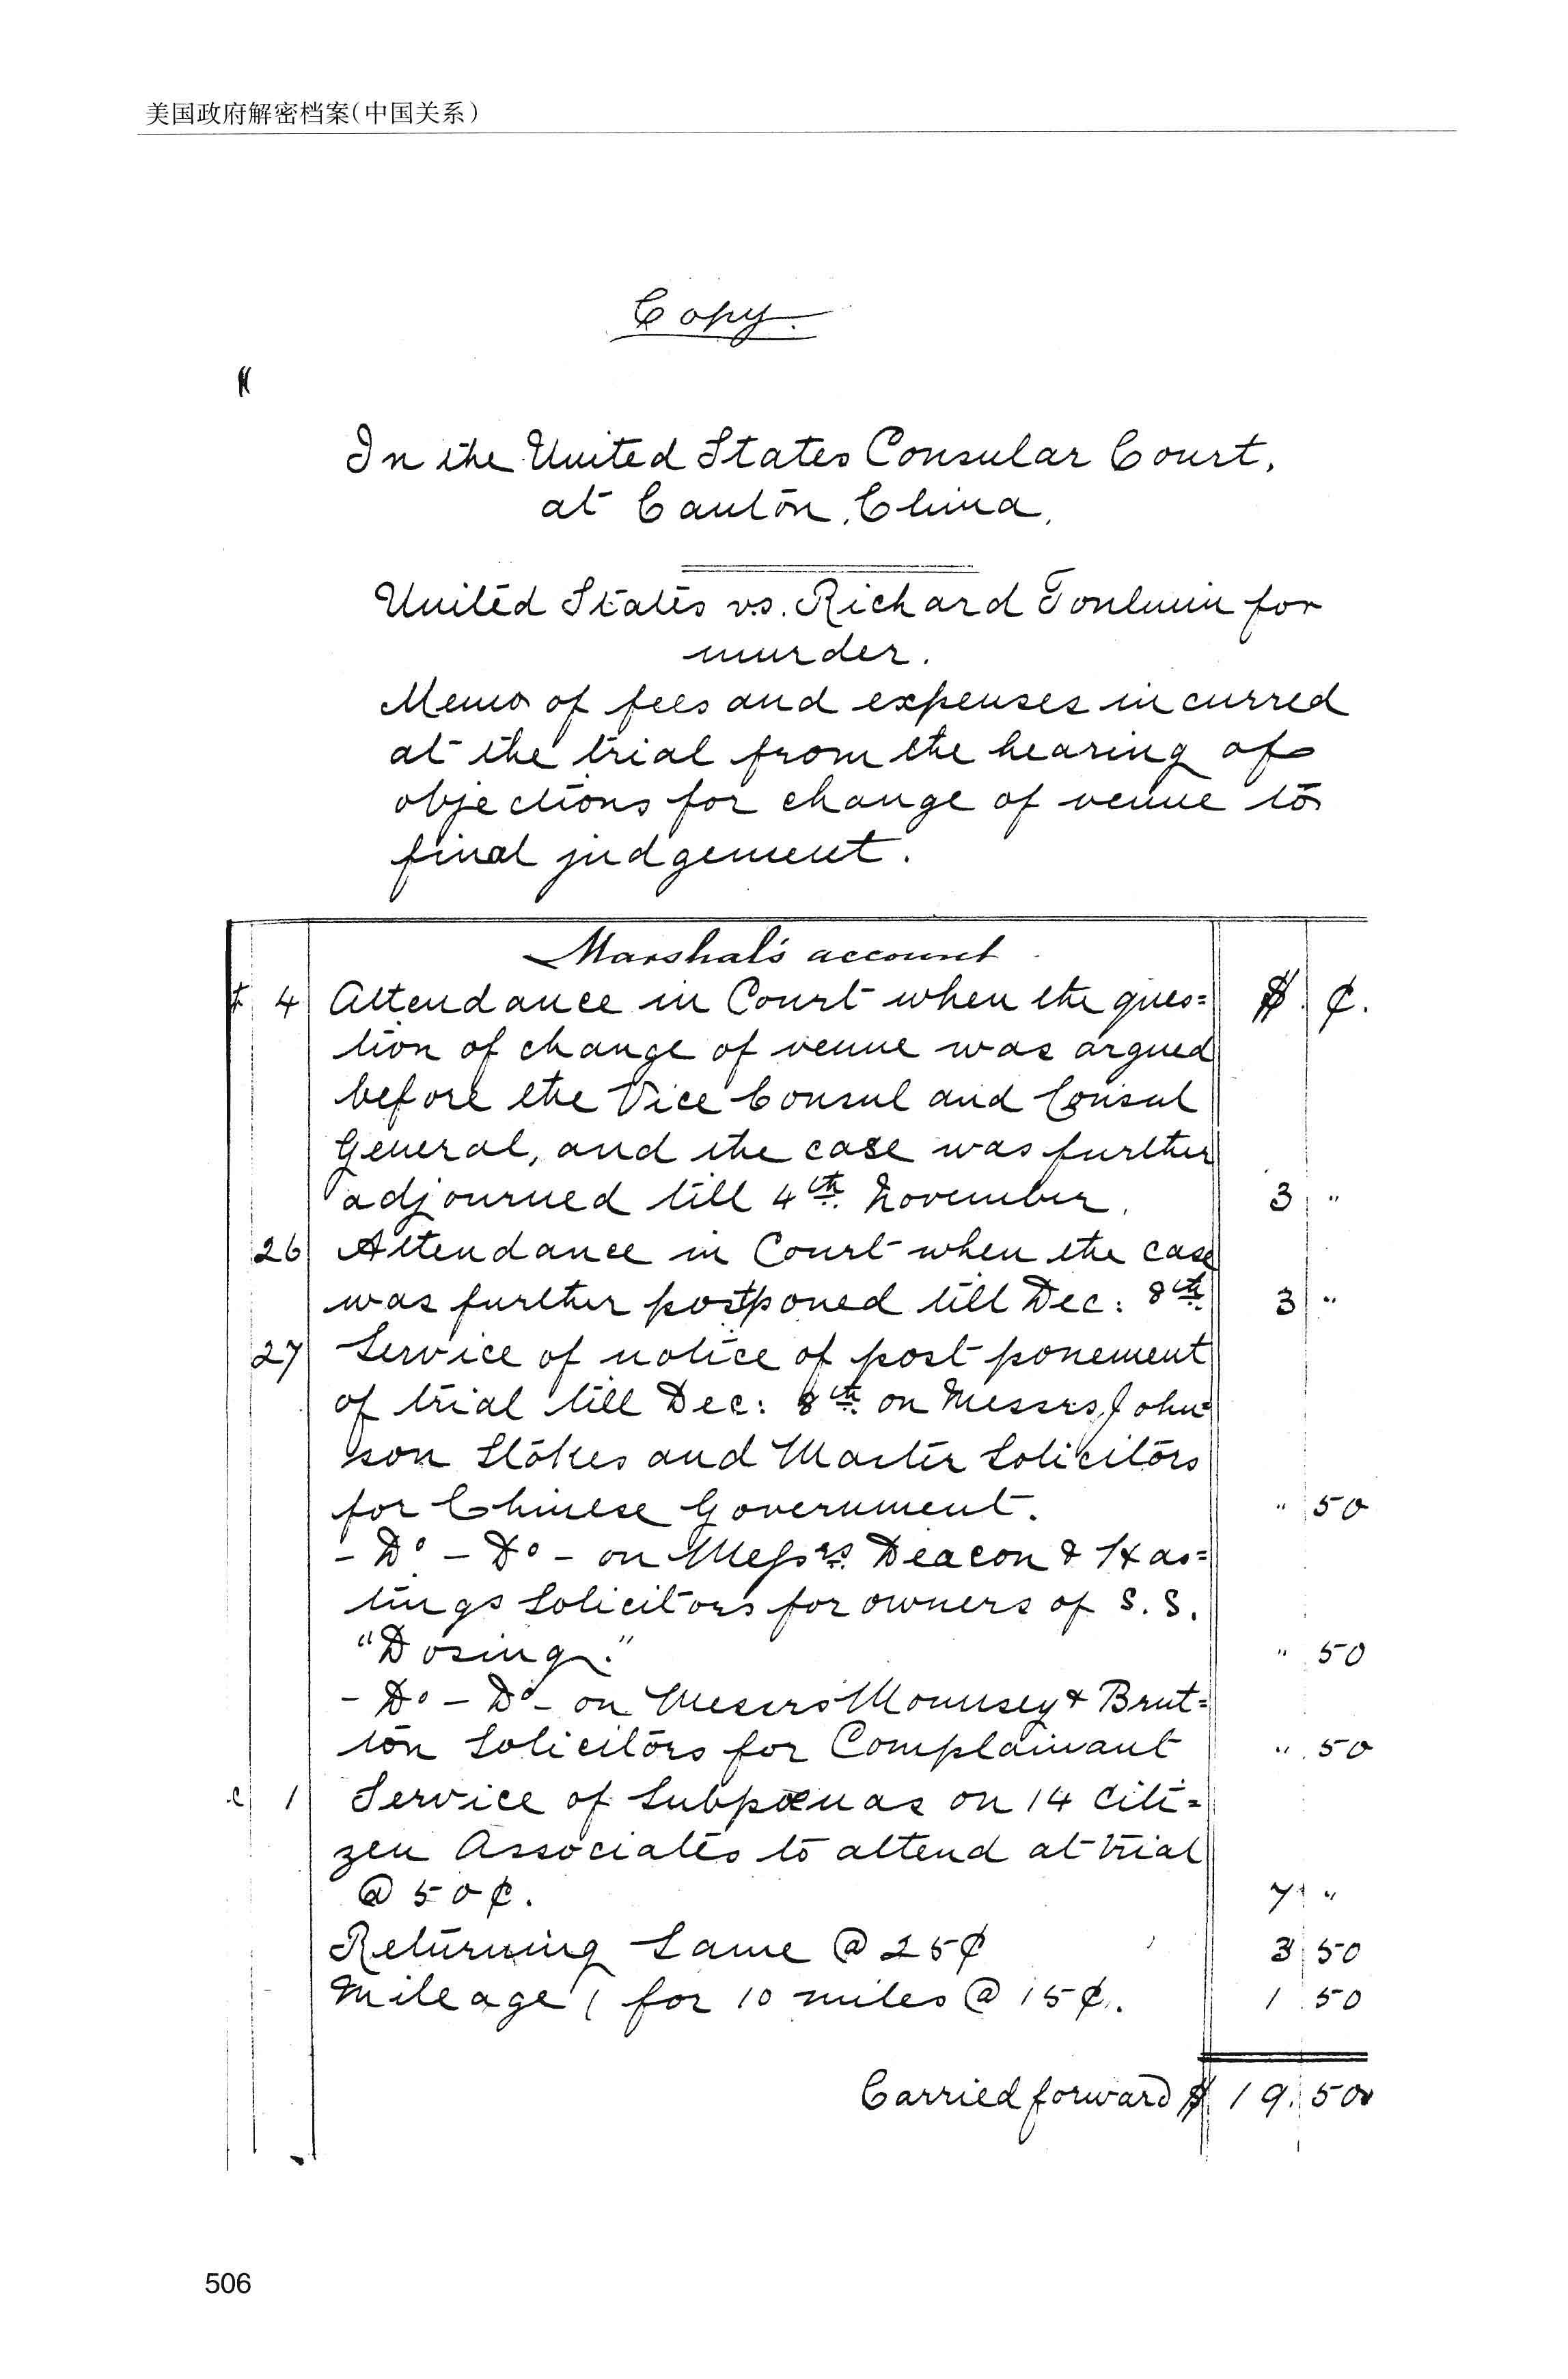 美国政府解密档案(中国关系)
Copy.
In the United States Consular Court,
at Canton, China.
United States vs. Richard Tonlmin for
murder.
Memo of fees and expenses incurred
at the trial from the hearing of
objections for change of venue to
final judgement.
Marshal's account
t 4 Attendance in Court when the ques= $. ¢.
tion of change of venue was argued
before the Vice Consul and Consul
General, and the case was further
adjourned till 4th. November. 3 "
26 Attendance in Court when the case
was further postponed till Dec: 8th. 3 "
27 Service of notice of post ponement
of trial till Dec: 8th. on Messrs. John=
son Stokes and Master Solicitors
for Chinese Government. " 50
- Do - Do - on Messrs. Deacon & Has=
tings Solicitors for owners of S. S.
"Dosing." " 50
- Do - Do - on Messrs Mounsey & Brut=
ton Solicitors for Complainant " 50
c 1 Service of Subpœnas on 14 Citi=
zen Associates to attend at trial
@ 50¢. 7 "
Returning Same @ 25¢ 3 50
Mileage ( for 10 miles @ 15¢. 1 50
Carried forward $ 19. 50
506